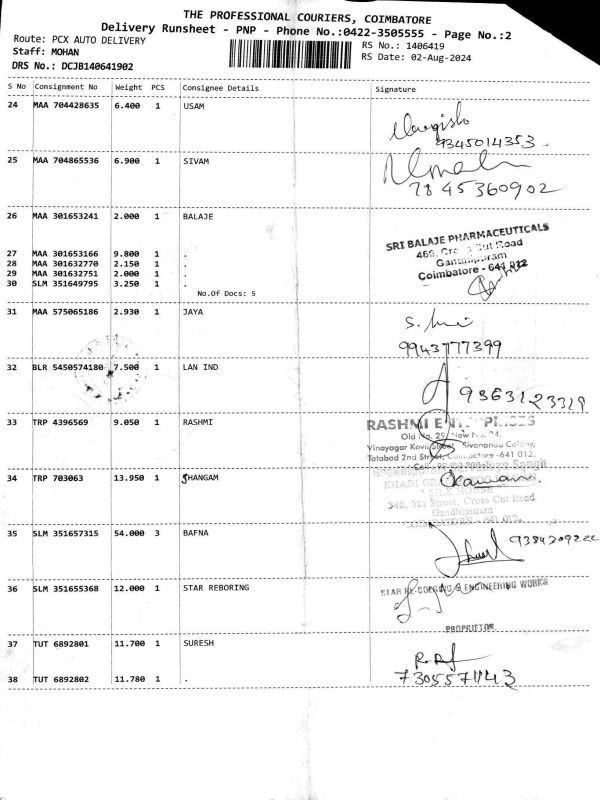 THE PROFESSIONAL COURIERS, COIMBATORE
Delivery Runsheet - PNP - Phone No.:0422-3505555 - Page No.:2
Route: PCX AUTO DELIVERY
RS No.: 1406419
Staff: MOHAN
RS Date: 02-Aug-2024
DRS No.: DCJB140641902
S No Consignment No Weight PCS Consignee Details Signature
24 MAA 704428635 6.400 1 USAM
9345014353
25 MAA 704865536 6.900 1 SIVAM
7845360902
26 MAA 301653241 2.000 1 BALAJE
SRI BALAJE PHARMACEUTICALS
466, Cut Road
Gandhipuram
Coimbatore - 641 012
27 MAA 301653166 9.800 1 .
28 MAA 301632770 2.150 1 .
29 MAA 301632751 2.000 1 .
30 SLM 351649795 3.250 1 .
No.Of Docs: 5
31 MAA 575065186 2.930 1 JAYA
9943777399
32 BLR 5450574180 7.500 1 LAN IND
9363123329
33 TRP 4396569 9.050 1 RASHMI
RASHMI
Old No. 29, New No. 74,
Vinayagar Kovil Street, Sivananda Colony,
Tatabad 2nd Street, Coimbatore -641 012.
34 TRP 703063 13.950 1 SHANGAM
SILK HOUSE
Street, Cross Cut Road
Gandhipuram
35 SLM 351657315 54.000 3 BAFNA
36 SLM 351655368 12.000 1 STAR REBORING
ENGINEERING WORKS
PROPRIETOR
37 TUT 6892801 11.700 1 SURESH
38 TUT 6892802 11.780 1 .